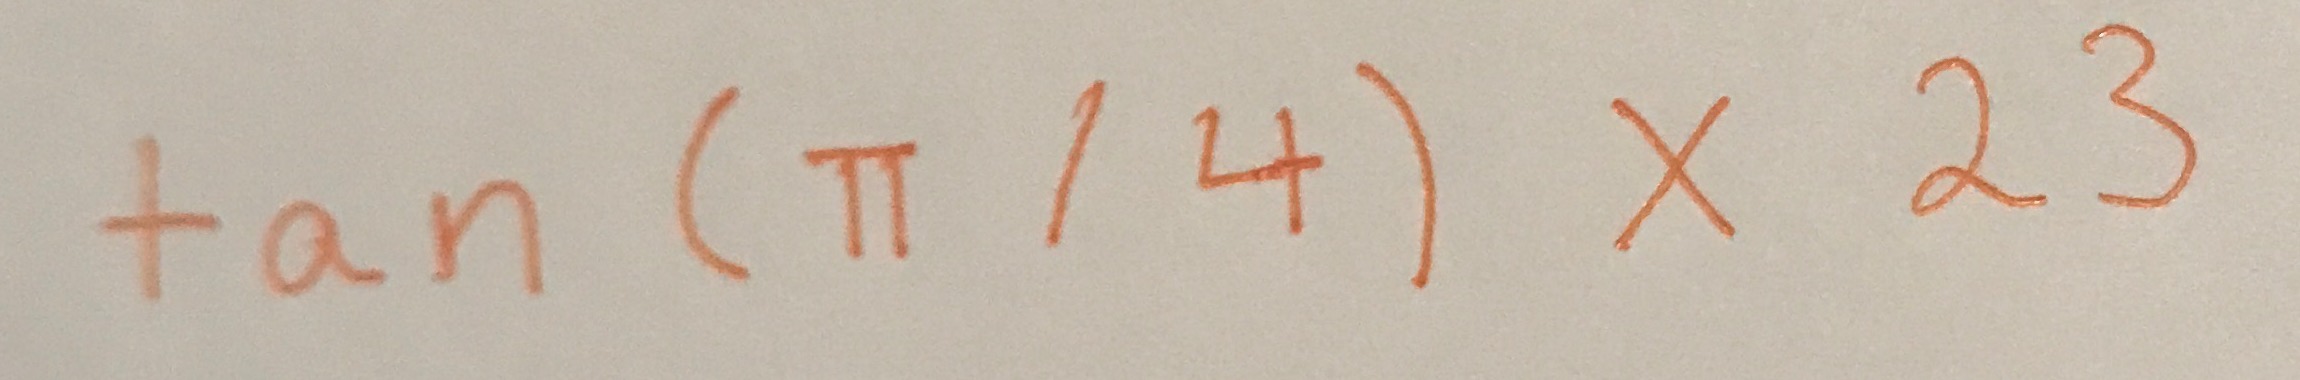 tan (π / 4) × 23